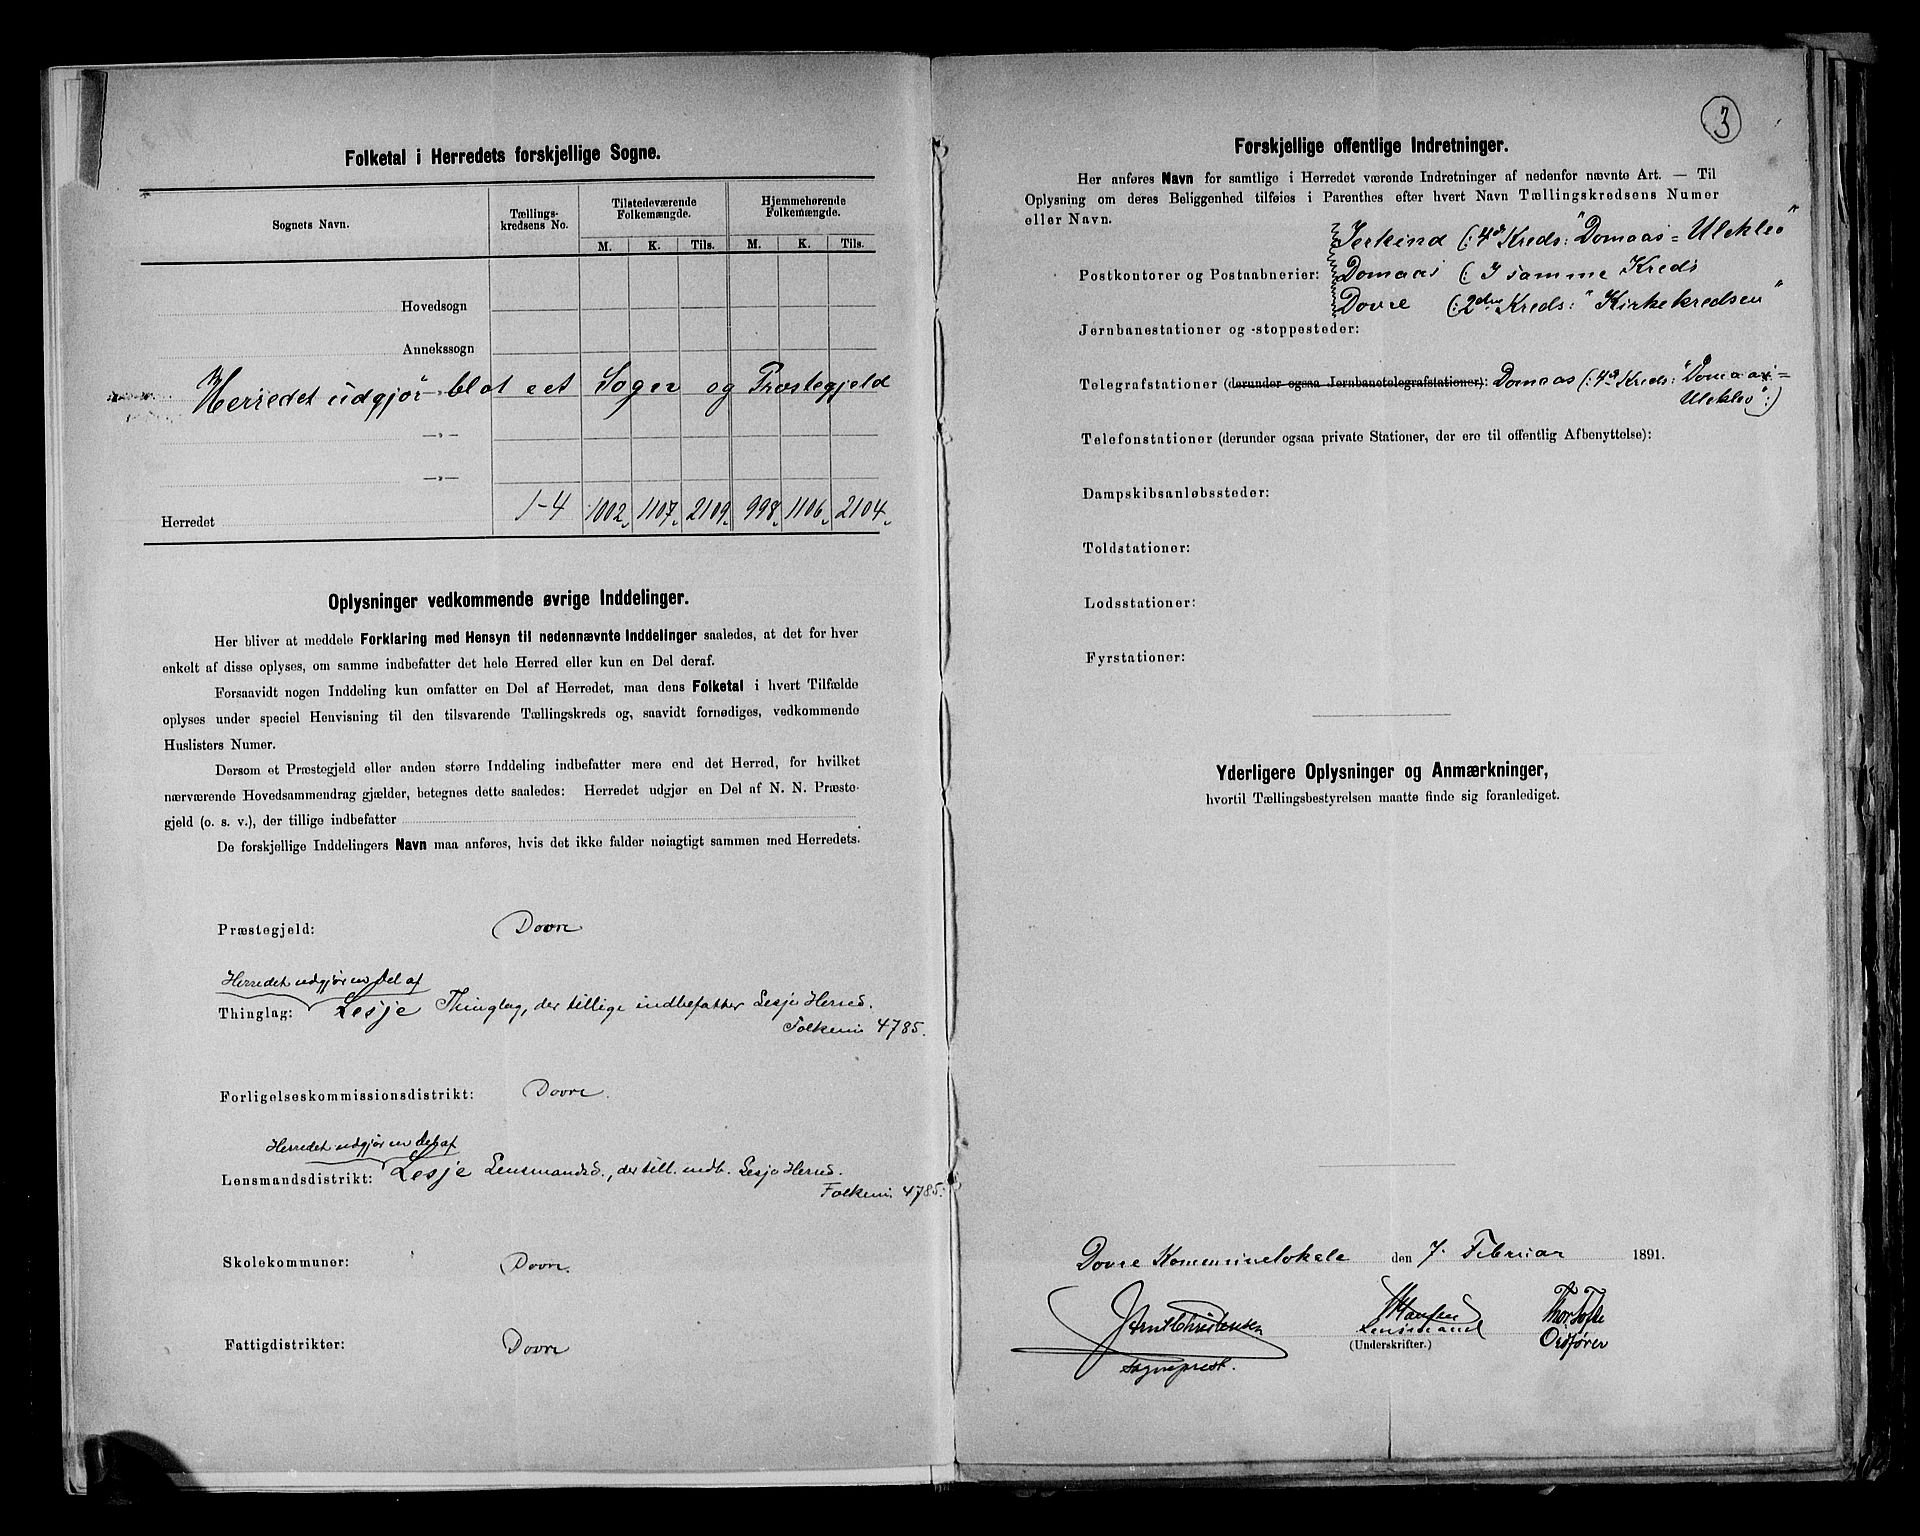 Folketal i Herredets forskjellige Sogne.
Sognets Navn. Tællings-kredsens No. Tilstedeværende Folkemængde. Hjemmehørende Folkemængde.
M. K. Tils. M. K. Tils.
Hovedsogn
Annekssogn
Herredet udgjør blot eet Sogn og Præstegjeld
—„—
—„—
Herredet 1-4 1002 1107 2109 998 1106 2104
Oplysninger vedkommende øvrige Inddelinger.
Her bliver at meddele Forklaring med Hensyn til nedennævnte Inddelinger saaledes, at det for hver
enkelt af disse oplyses, om samme indbefatter det hele Herred eller kun en Del deraf.
Forsaavidt nogen Inddeling kun omfatter en Del af Herredet, maa dens Folketal i hvert Tilfælde
oplyses under speciel Henvisning til den tilsvarende Tællingskreds og, saavidt fornødiges, vedkommende
Huslisters Numer.
Dersom et Præstegjeld eller anden større Inddeling indbefatter mere end det Herred, for hvilket
nærværende Hovedsammendrag gjælder, betegnes dette saaledes: Herredet udgjør en Del af N. N. Præste-
gjeld (o. s. v.), der tillige indbefatter
De forskjellige Inddelingers Navn maa anføres, hvis det ikke falder nøiagtigt sammen med Herredets.
Præstegjeld: Dovre
Herredet udgjør en Del af
Thinglag: Lesje Thinglag, der tillige indbefatter Lesje Herred.
Folkem. 4785.
Forligelseskommissionsdistrikt: Dovre.
Herredet udgjør en Del af
Lensmandsdistrikt: Lesje Lensmandsd., der till. indb. Lesje Herred.
Folkem. 4785.
Skolekommuner: Dovre.
Fattigdistrikter: Dovre
3
Forskjellige offentlige Indretninger.
Her anføres Navn for samtlige i Herredet værende Indretninger af nedenfor nævnte Art. — Til
Oplysning om deres Beliggenhed tilføies i Parenthes efter hvert Navn Tællingskredsens Numer
eller Navn.
Jerkind (: 4d Kreds: "Domaas = Uleklev"
Postkontorer og Postaabnerier: Domaas (: I samme Kreds
Dovre (: 2den Kreds: "Kirkekredsen"
Jernbanestationer og -stoppesteder:
Telegrafstationer (derunder ogsaa Jernbanetelegrafstationer): Domaas (: 4d Kreds: "Domaas =
Uleklev" :)
Telefonstationer (derunder ogsaa private Stationer, der ere til offentlig Afbenyttelse):
Dampskibsanløbssteder:
Toldstationer:
Lodsstationer:
Fyrstationer:
Yderligere Oplysninger og Anmærkninger,
hvortil Tællingsbestyrelsen maatte finde sig foranlediget.
Dovre Kommunelokale den 7. Februar 1891.
Christensen Hansen Thor Tofte
Lensmand Ordfører
(Underskrifter.)
Sogneprest.